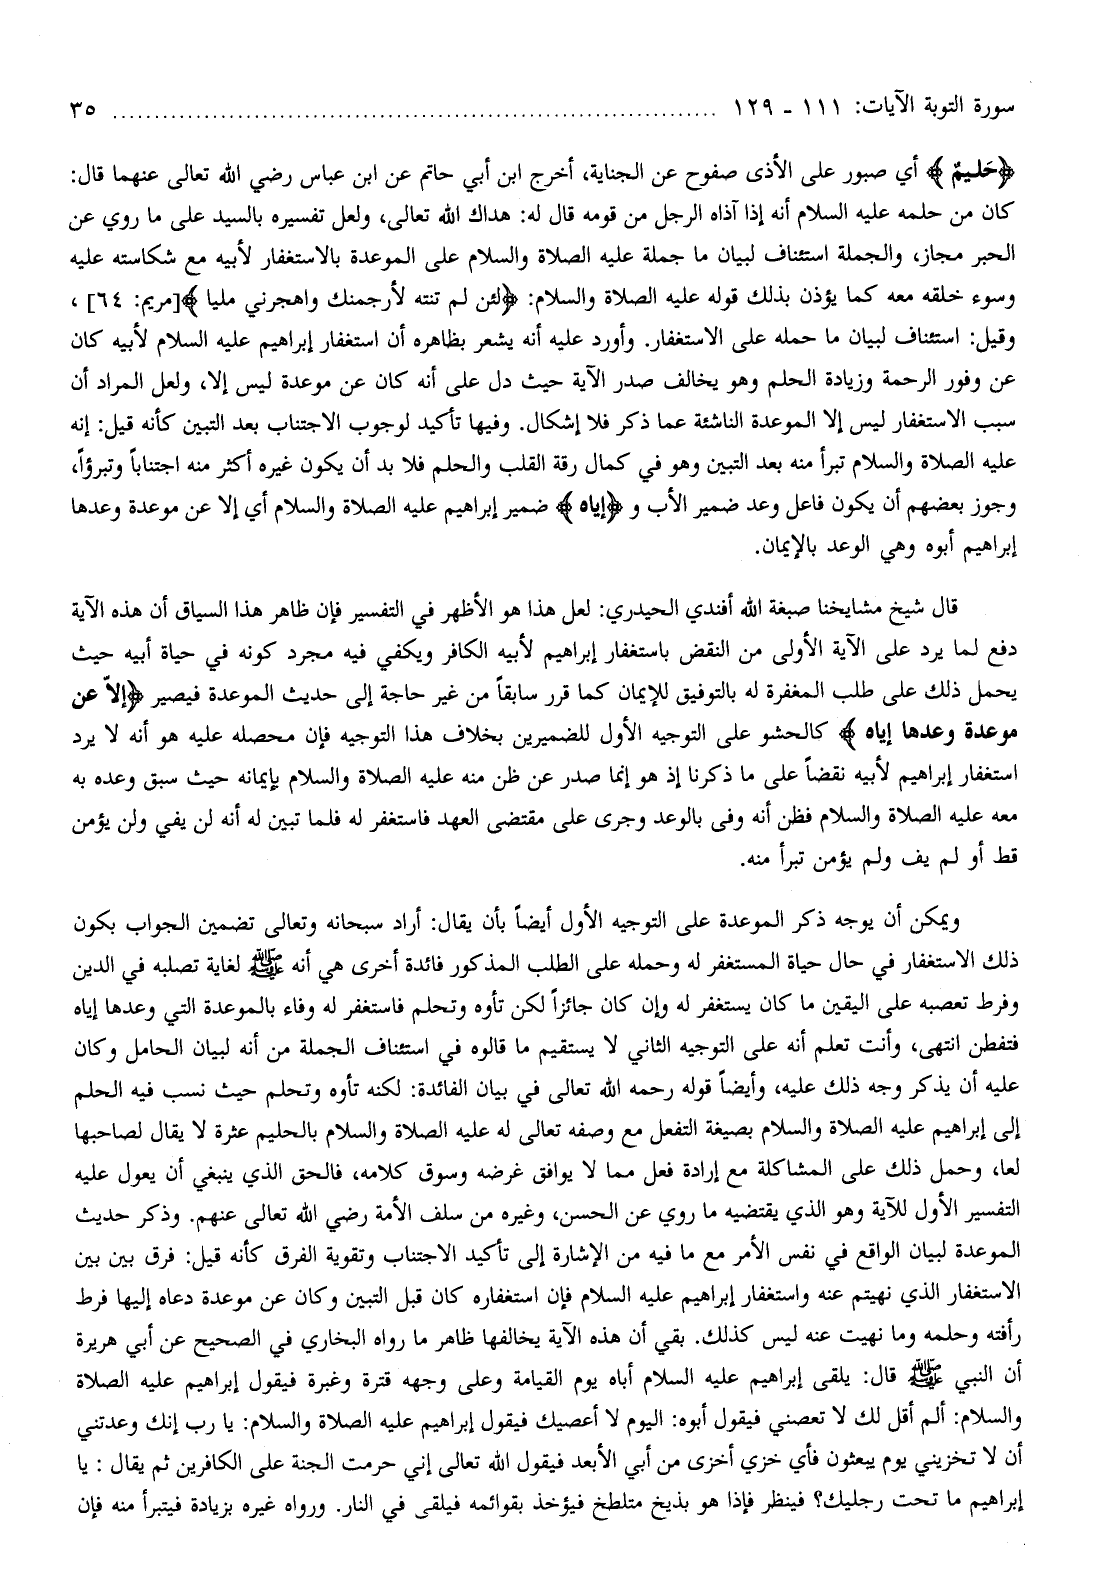 سورة التوبة الآيات: ١١١ - ١٢٩ ................................................................ ٣٥
﴿حَليمٌ﴾ أي صبور على الأذى صفوح عن الجناية، أخرج ابن أبي حاتم عن ابن عباس رضي الله تعالى عنهما قال:
كان من حلمه عليه السلام أنه إذا آذاه الرجل من قومه قال له: هداك الله تعالى، ولعل تفسيره بالسيد على ما روي عن
الحبر مجاز، والجملة استئناف لبيان ما جملة عليه الصلاة والسلام على الموعدة بالاستغفار لأبيه مع شكاسته عليه
وسوء خلقه معه كما يؤذن بذلك قوله عليه الصلاة والسلام: ﴿لئن لم تنته لأرجمنك واهجرني مليا﴾[مريم: ٦٤] ،
وقيل: استئناف لبيان ما حمله على الاستغفار. وأورد عليه أنه يشعر بظاهره أن استغفار إبراهيم عليه السلام لأبيه كان
عن وفور الرحمة وزيادة الحلم وهو يخالف صدر الآية حيث دل على أنه كان عن موعدة ليس إلا، ولعل المراد أن
سبب الاستغفار ليس إلا الموعدة الناشئة عما ذكر فلا إشكال. وفيها تأكيد لوجوب الاجتناب بعد التبين كأنه قيل: إنه
عليه الصلاة والسلام تبرأ منه بعد التبين وهو في كمال رقة القلب والحلم فلا بد أن يكون غيره أكثر منه اجتناباً وتبرؤاً،
وجوز بعضهم أن يكون فاعل وعد ضمير الأب و ﴿إياه﴾ ضمير إبراهيم عليه الصلاة والسلام أي إلا عن موعدة وعدها
إبراهيم أبوه وهي الوعد بالإيمان.
قال شيخ مشايخنا صبغة الله أفندي الحيدري: لعل هذا هو الأظهر في التفسير فإن ظاهر هذا السياق أن هذه الآية
دفع لما يرد على الآية الأولى من النقض باستغفار إبراهيم لأبيه الكافر ويكفي فيه مجرد كونه في حياة أبيه حيث
يحمل ذلك على طلب المغفرة له بالتوفيق للإيمان كما قرر سابقاً من غير حاجة إلى حديث الموعدة فيصير ﴿إلاّ عن
موعدة وعدها إياه﴾ كالحشو على التوجيه الأول للضميرين بخلاف هذا التوجيه فإن محصله عليه هو أنه لا يرد
استغفار إبراهيم لأبيه نقضاً على ما ذكرنا إذ هو إنما صدر عن ظن منه عليه الصلاة والسلام بإيمانه حيث سبق وعده به
معه عليه الصلاة والسلام فظن أنه وفى بالوعد وجرى على مقتضى العهد فاستغفر له فلما تبين له أنه لن يفي ولن يؤمن
قط أو لم يف ولم يؤمن تبرأ منه.
ويمكن أن يوجه ذكر الموعدة على التوجيه الأول أيضاً بأن يقال: أراد سبحانه وتعالى تضمين الجواب بكون
ذلك الاستغفار في حال حياة المستغفر له وحمله على الطلب المذكور فائدة أخرى هي أنه ﷺ لغاية تصلبه في الدين
وفرط تعصبه على اليقين ما كان يستغفر له وإن كان جائزاً لكن تأوه وتحلم فاستغفر له وفاء بالموعدة التي وعدها إياه
فتفطن انتهى، وأنت تعلم أنه على التوجيه الثاني لا يستقيم ما قالوه في استئناف الجملة من أنه لبيان الحامل وكان
عليه أن يذكر وجه ذلك عليه، وأيضاً قوله رحمه الله تعالى في بيان الفائدة: لكنه تأوه وتحلم حيث نسب فيه الحلم
إلى إبراهيم عليه الصلاة والسلام بصيغة التفعل مع وصفه تعالى له عليه الصلاة والسلام بالحليم عثرة لا يقال لصاحبها
لعا، وحمل ذلك على المشاكلة مع إرادة فعل مما لا يوافق غرضه وسوق كلامه، فالحق الذي ينبغي أن يعول عليه
التفسير الأول للآية وهو الذي يقتضيه ما روي عن الحسن، وغيره من سلف الأمة رضي الله تعالى عنهم. وذكر حديث
الموعدة لبيان الواقع في نفس الأمر مع ما فيه من الإشارة إلى تأكيد الاجتناب وتقوية الفرق كأنه قيل: فرق بين بين
الاستغفار الذي نهيتم عنه واستغفار إبراهيم عليه السلام فإن استغفاره كان قبل التبين وكان عن موعدة دعاه إليها فرط
رأفته وحلمه وما نهيت عنه ليس كذلك. بقي أن هذه الآية يخالفها ظاهر ما رواه البخاري في الصحيح عن أبي هريرة
أن النبي ﷺ قال: يلقى إبراهيم عليه السلام أباه يوم القيامة وعلى وجهه قترة وغبرة فيقول إبراهيم عليه الصلاة
والسلام: ألم أقل لك لا تعصني فيقول أبوه: اليوم لا أعصيك فيقول إبراهيم عليه الصلاة والسلام: يا رب إنك وعدتني
أن لا تخزيني يوم يبعثون فأي خزي أخزى من أبي الأبعد فيقول الله تعالى إني حرمت الجنة على الكافرين ثم يقال : يا
إبراهيم ما تحت رجليك؟ فينظر فإذا هو بذيخ متلطخ فيؤخذ بقوائمه فيلقى في النار. ورواه غيره بزيادة فيتبرأ منه فإن